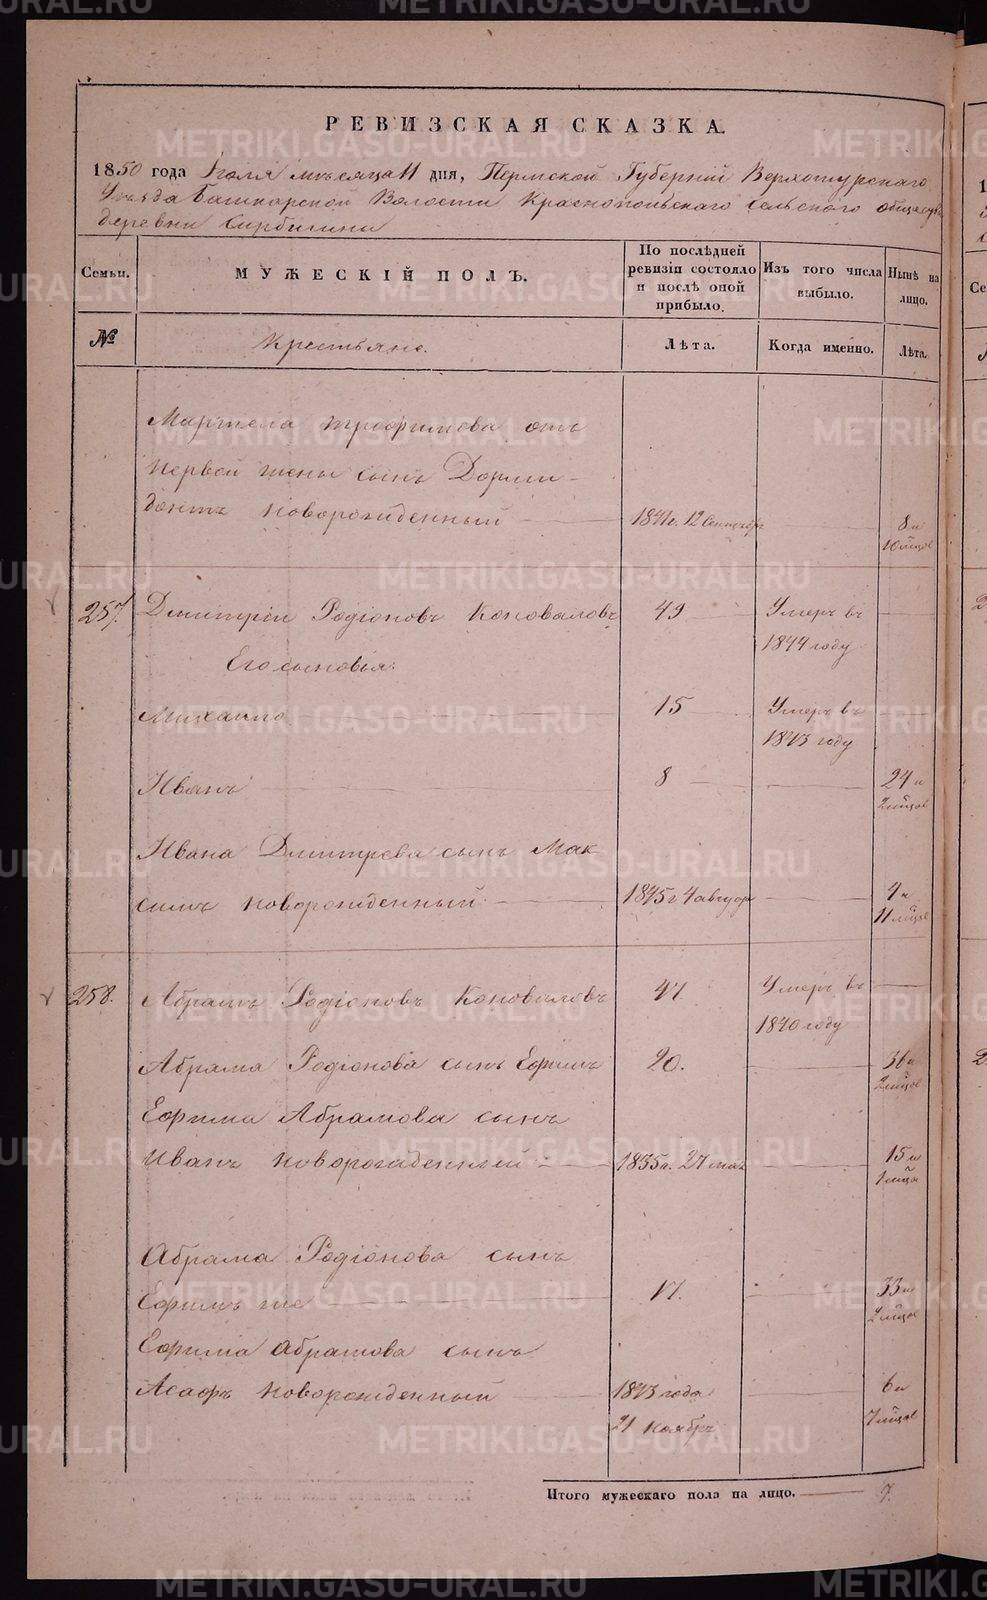 РЕВИЗСКАЯ СКАЗКА.
1850 года Іюля мѣсяца 11 дня, Пермской Губерніи Верхотурскаго
Уѣзда Башкарской Волости Краснопольскаго сельскаго общества
деревни
Семьи.
МУЖЕСКІЙ ПОЛЪ.
По послѣдней ревизіи состояло и послѣ оной прибыло.
Изъ того числа выбыло.
Нынѣ на лицо.
№
Крестьяне.
Лѣта.
Когда именно.
Лѣта.
Трофимова отъ
первой жены сынъ Дорми-
донтъ новорожденный 1841г. 12 Сентябр 8 и
10 мѣцов
257. Дмитріи Родіоновъ Коноваловъ 49 Умеръ въ
1844 году
Его сыновья:
Михаило 15 Умеръ въ
1843 году
Иванъ 8 24 и
2 мѣцов
Ивана Дмитрева сынъ Мак
симъ новорожденный 1845 г 4 август 4 и
11 мѣцов
258. Абрамъ Родіоновъ Коноваловъ 47 Умеръ въ
1840 году
Абрама Родіонова сынъ Ефимъ 20. 36 и
2 мѣцов
Ефима Абрамова сынъ
Иванъ новорожденный 1835г. 27 мая 15 и
1 мѣца
Абрама Родіонова сынъ
Ефимъ же 17. 33 и
2 мѣцов
Ефима Абрамова сынъ
Асафъ новорожденный 1843 года 6 и
21 ноябръ 7 мѣцов
Итого мужескаго пола на лицо. 7.
METRIKI.GASO-URAL.RU